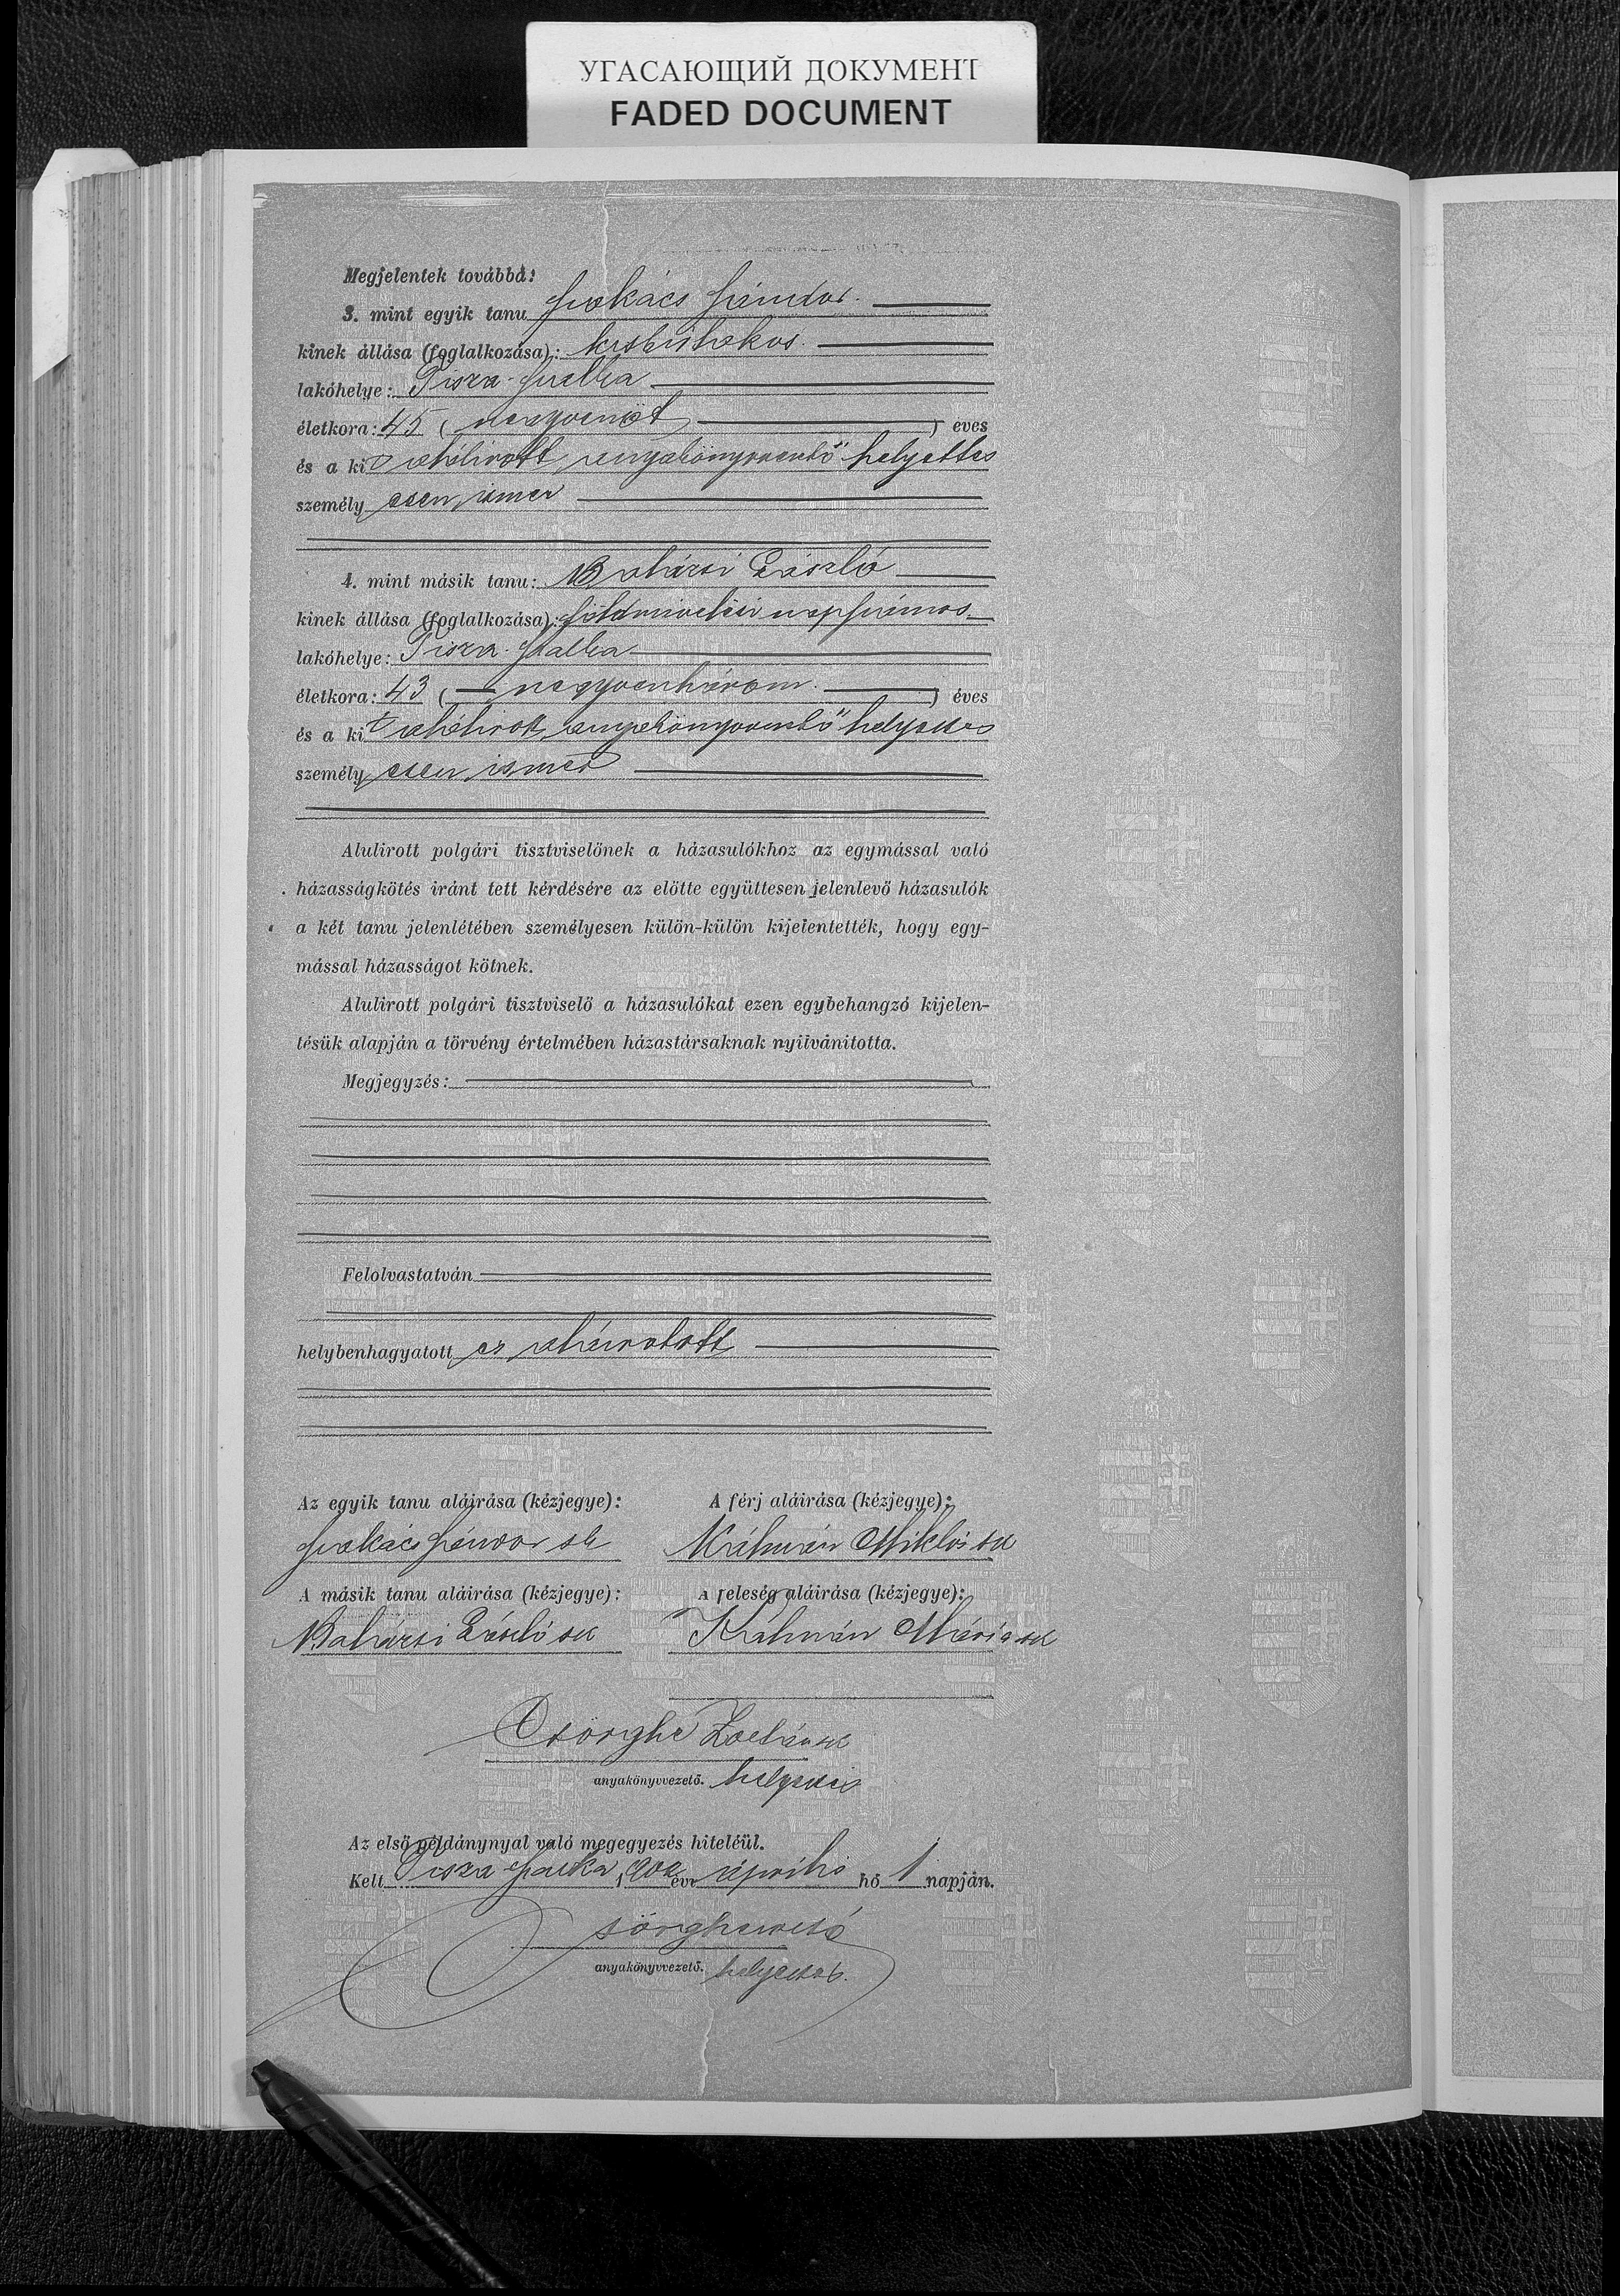 УГАСАЮЩИЙ ДОКУМЕНТ
FADED DOCUMENT
Megjelentek továbbá:
3. mint egyik tanu Szakács Sándor.
kinek állása (foglalkozása): kisbirtokos.
lakóhelye: Tisza-Szalka
életkora: 45 (negyvenöt) éves
és a kit alólirott anyakönyvvezető helyettes
személyesen ismer
4. mint másik tanu: Batizi László
kinek állása (foglalkozása): földmivelési napszámos
lakóhelye: Tisza-Szalka
életkora: 43 (negyvenhárom.) éves
és a kit alólirott anyakönyvvezető helyettes
személyesen ismer
Alulirott polgári tisztviselőnek a házasulókhoz az egymással való
házasságkötés iránt tett kérdésére az előtte együttesen jelenlevő házasulók
a két tanu jelenlétében személyesen külön-külön kijelentették, hogy egy-
mással házasságot kötnek.
Alulirott polgári tisztviselő a házasulókat ezen egybehangzó kijelen-
tésük alapján a törvény értelmében házastársaknak nyilvánitotta.
Megjegyzés:
Felolvastatván
helybenhagyatott és aláiratott
Az egyik tanu aláirása (kézjegye): A férj aláirása (kézjegye):
Szakács Sándor sk Kálmán Miklós sk
A másik tanu aláirása (kézjegye): A feleség aláirása (kézjegye):
László sk Kálmán Mária sk
Csörghe Zoltán sk
anyakönyvvezető. helyettes
Az első példánynyal való megegyezés hiteléül.
Kelt Tisza Szalka, 1902 évi április hó 1 napján.
anyakönyvvezető. helyettes.